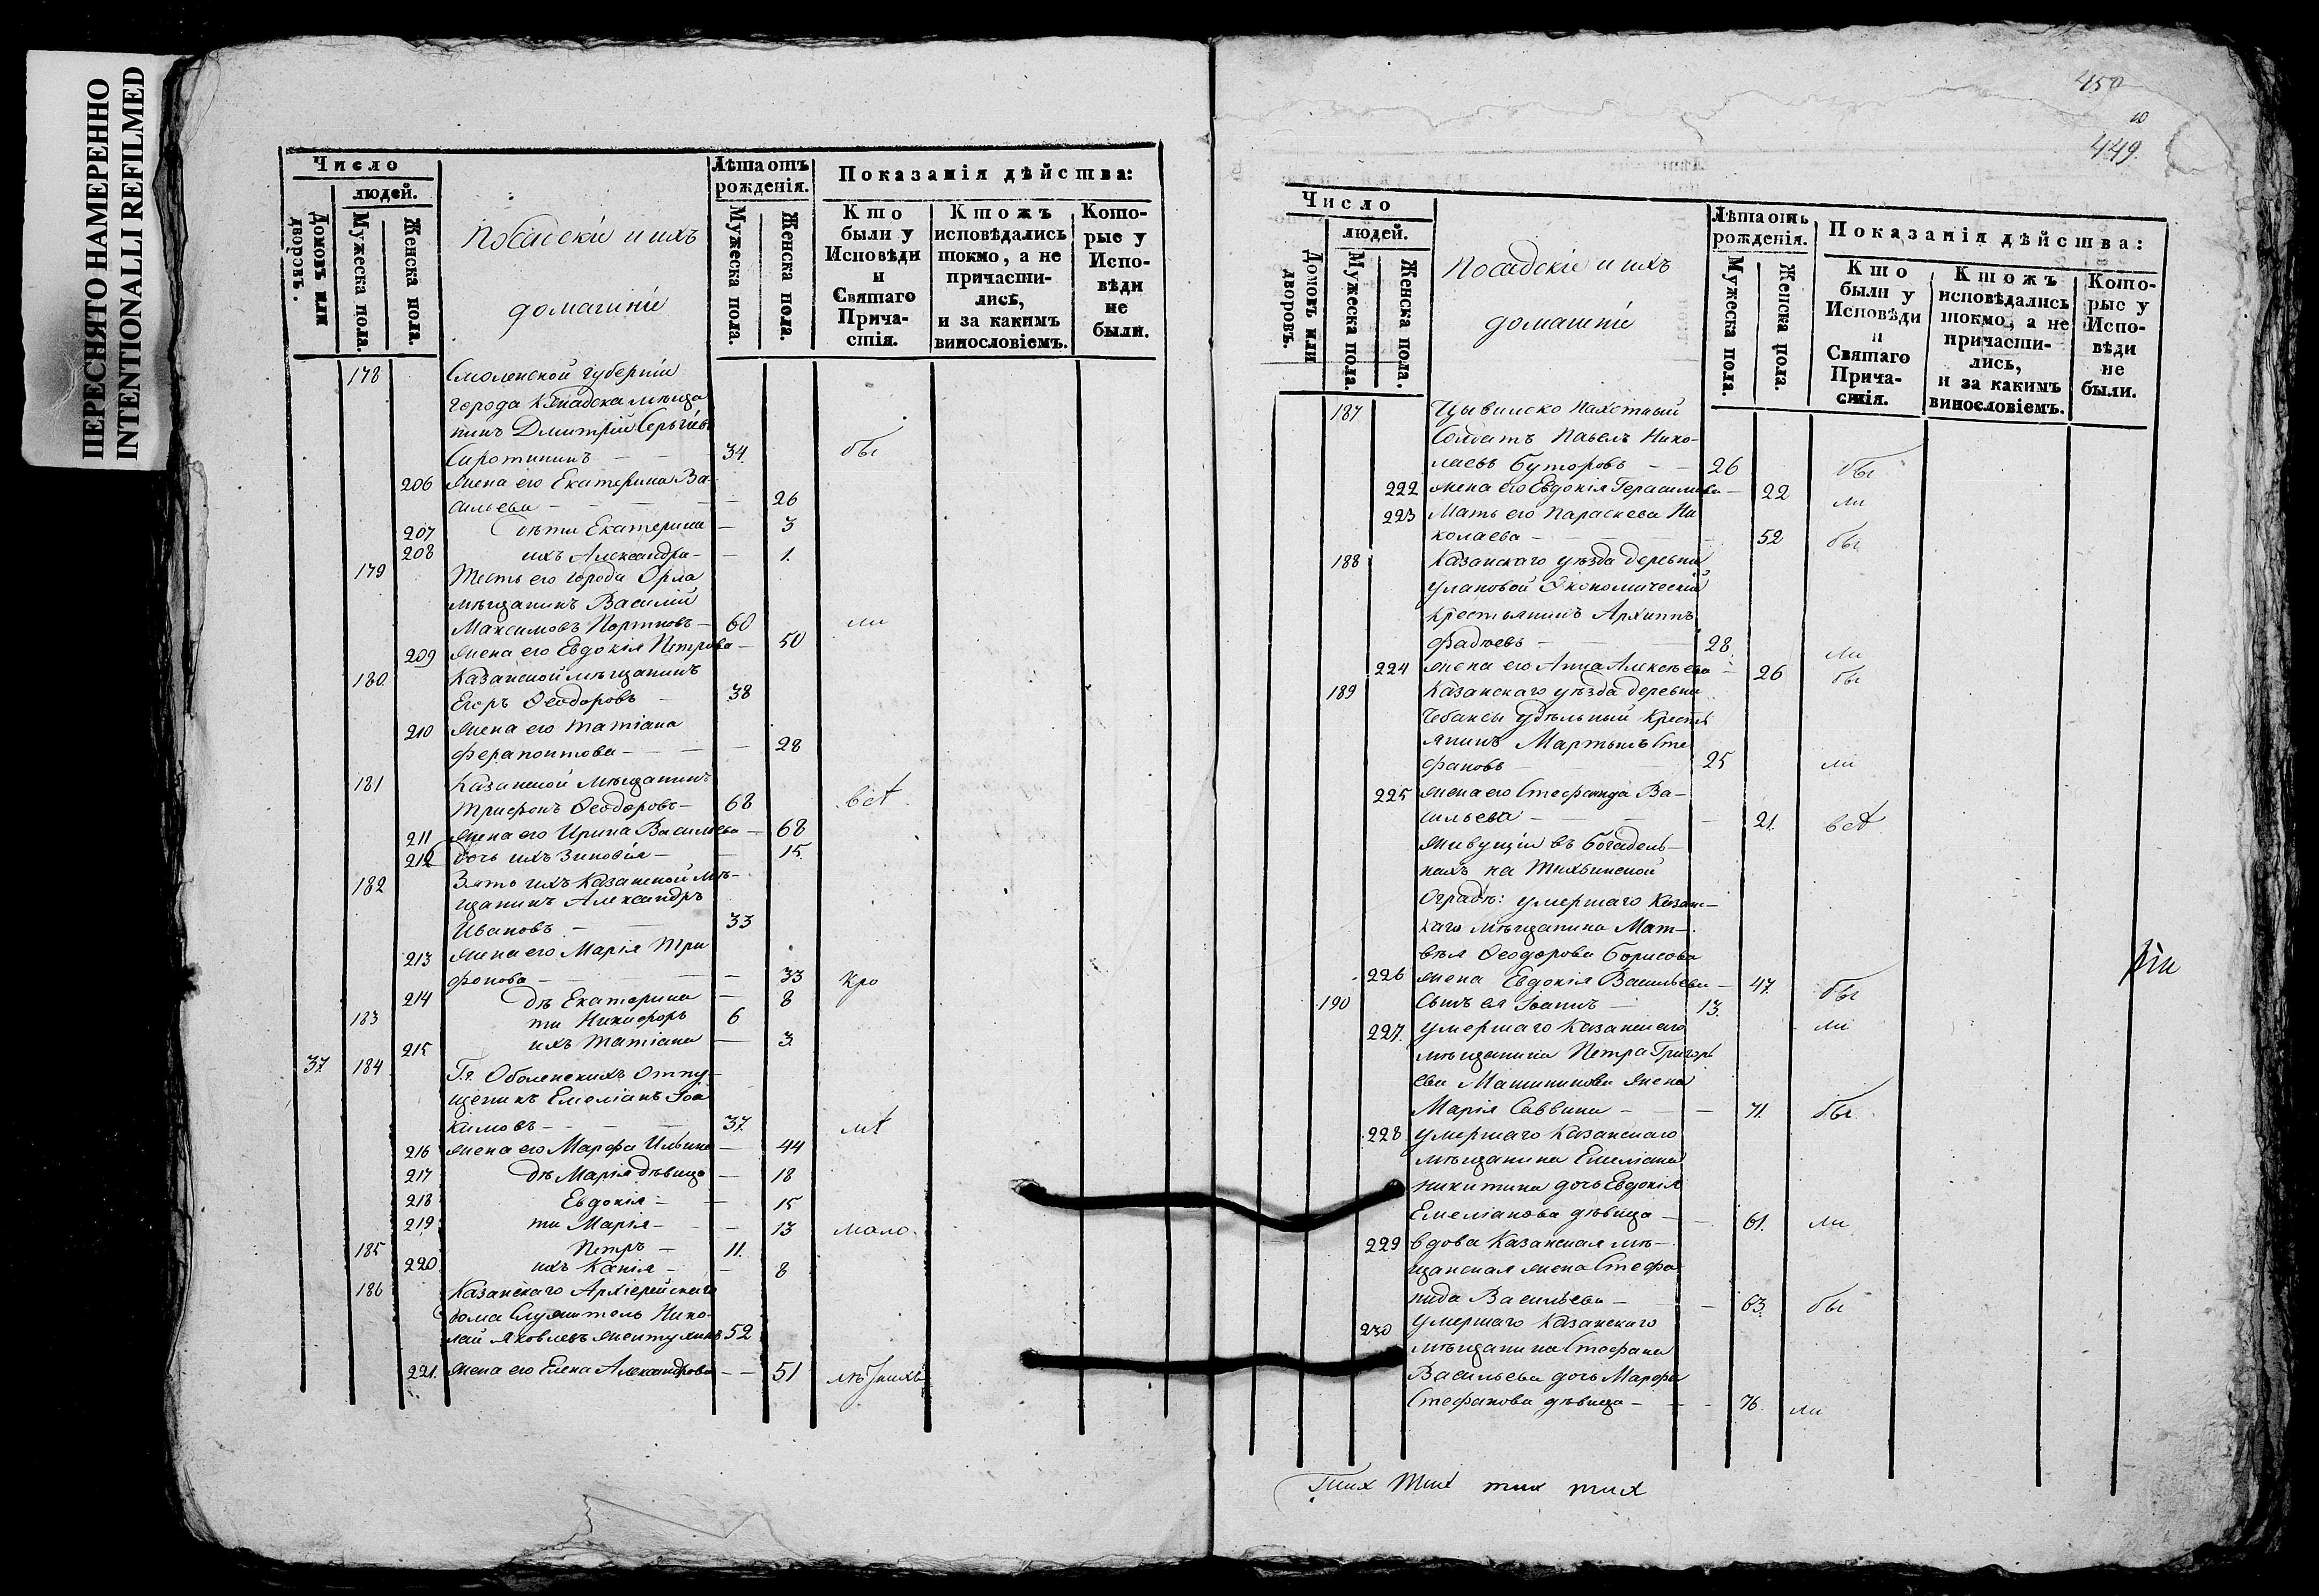 ПЕРЕСНЯТО НАМЕРЕННО
INTENTIONALLI REFILMED
Число
людей.
Домовъ или дворовъ.
Мужеска пола.
Женска пола.
Посадскіе и ихъ
домашніе
Лѣта отъ рожденія.
Мужеска пола.
Женска пола.
Показанія дѣйства:
Кто были у Исповѣди и Святаго Причастія.
Ктожъ исповѣдались токмо, а не причастились, и за какимъ винословіемъ.
Которые у Исповѣди не были.
178 Смоленской губерніи
города мѣща
нинъ Дмитрій Сергѣевъ
Сиротининъ — 34. бы
206 жена его Екатерина Ва-
сильева — 26
207 дѣти Екатерина — 3
208 ихъ Александра — 1.
179 Тесть его города Орла
мѣщанинъ Василій
Максимовъ Портновъ — 60 ли
209 жена его Евдокія Петрова — 50
180. Казанской мѣщанинъ
Егоръ Ѳеодоровъ — 38
210 жена его Татіана
Ферапонтова — 28
181 Казанской мѣщанинъ
Трифонъ Ѳеодоровъ — 68 всѣ
211 жена его Ирина Васильева — 68
212 дочь ихъ Зиновія — 15.
182 Зять ихъ Казанской мѣ-
щанинъ Александръ
Ивановъ — 33
213 жена его Марія Три
фонова — 33 кро
214 дѣ Екатерина — 8
183 ти Никифоръ 6
215 ихъ Татіана — 3
37 184 Гг. Оболенскихъ отпу-
щеникъ Емеліанъ Іоа
кимовъ — 37. мѣ
216 жена его Марфа Ильина — 44
217 дѣ Марія дѣвица — 18
218 Евдокія — 15
219 ти Марія — 13 мало.
185 Петръ — 11.
220 ихъ Ксенія — 8
186 Казанскаго Архіерейскаго
дома Служитель Нико-
лай Яковлевъ 52
221. жена его Елена Александрова — 51
450
449.
Число
людей.
Домовъ или дворовъ.
Мужеска пола.
Женска пола.
Посадскіе и ихъ
домашніе
Лѣта отъ рожденія.
Мужеска пола.
Женска пола.
Показанія дѣйства:
Кто были у Исповѣди и Святаго Причастія.
Ктожъ исповѣдались токмо, а не причастились, и за какимъ винословіемъ.
Которые у Исповѣди не были.
187 Пахотный
Солдатъ Павелъ Нико-
лаевъ Буторовъ — 26 бы
222 жена его Евдокія Герасимова — 22 ли
223 Мать его Параскева Ни
колаева — 52 бы
188 Казанскаго уѣзда деревни
Улановой Экономическій
крестьянинъ Архиппъ
Фадѣевъ — 28. ли
224 жена его Анна Алексѣева — 26 бы
189 Казанскаго уѣзда деревни
Чебаксы удѣльный кресть
янинъ Мартынъ Сте
фановъ — 25 ли
225 жена его Стефанида Ва-
сильева — 21. всѣ
живущіи въ богадель-
няхъ на Тихвинской
Оградѣ: умершаго Казанс-
каго мѣщанина Мат-
вѣя Ѳеодорова Борисова
226 жена Евдокія Васильева — 47. бы
190 сынъ ея Іоаннъ — 13. ли
227. умершаго Казанскаго
мѣщанина Петра Григорь
ева жена
Марія Саввина — 71. бы
228 умершаго Казанскаго
мѣщанина Емеліана
Никитина дочь Евдокія
Емеліанова дѣвица — 61. ли
229 вдова Казанская мѣ-
щанская жена Стефа
нида Васильева — 63. бы
230 умершаго Казанскаго
мѣщанина Стефана
Васильева дочь Марфа
Стефанова дѣвица — 76. ли
Тих Тих тих тих